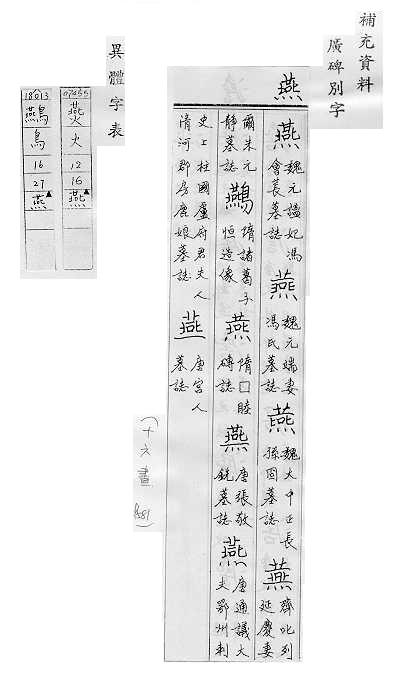 補充資料
廣碑別字
燕
燕 魏元諡妃馮會萇墓誌 燕 魏元端妻馮氏墓誌 燕 魏大中正長孫囧墓誌 燕 齊叱列延慶妻
爾朱元靜墓誌 鷰 隋諸葛子恒造像 燕 隋□睦磚誌 燕 唐張敬銑墓誌 燕 唐通議大夫鄂州刺
史上柱國盧府君夫人清河郡君鹿娘墓誌 燕 唐宮人墓誌
(十六畫 1581)
異體字表
07455
燕
火
12
16
燕
18013
鷰
鳥
16
27
燕